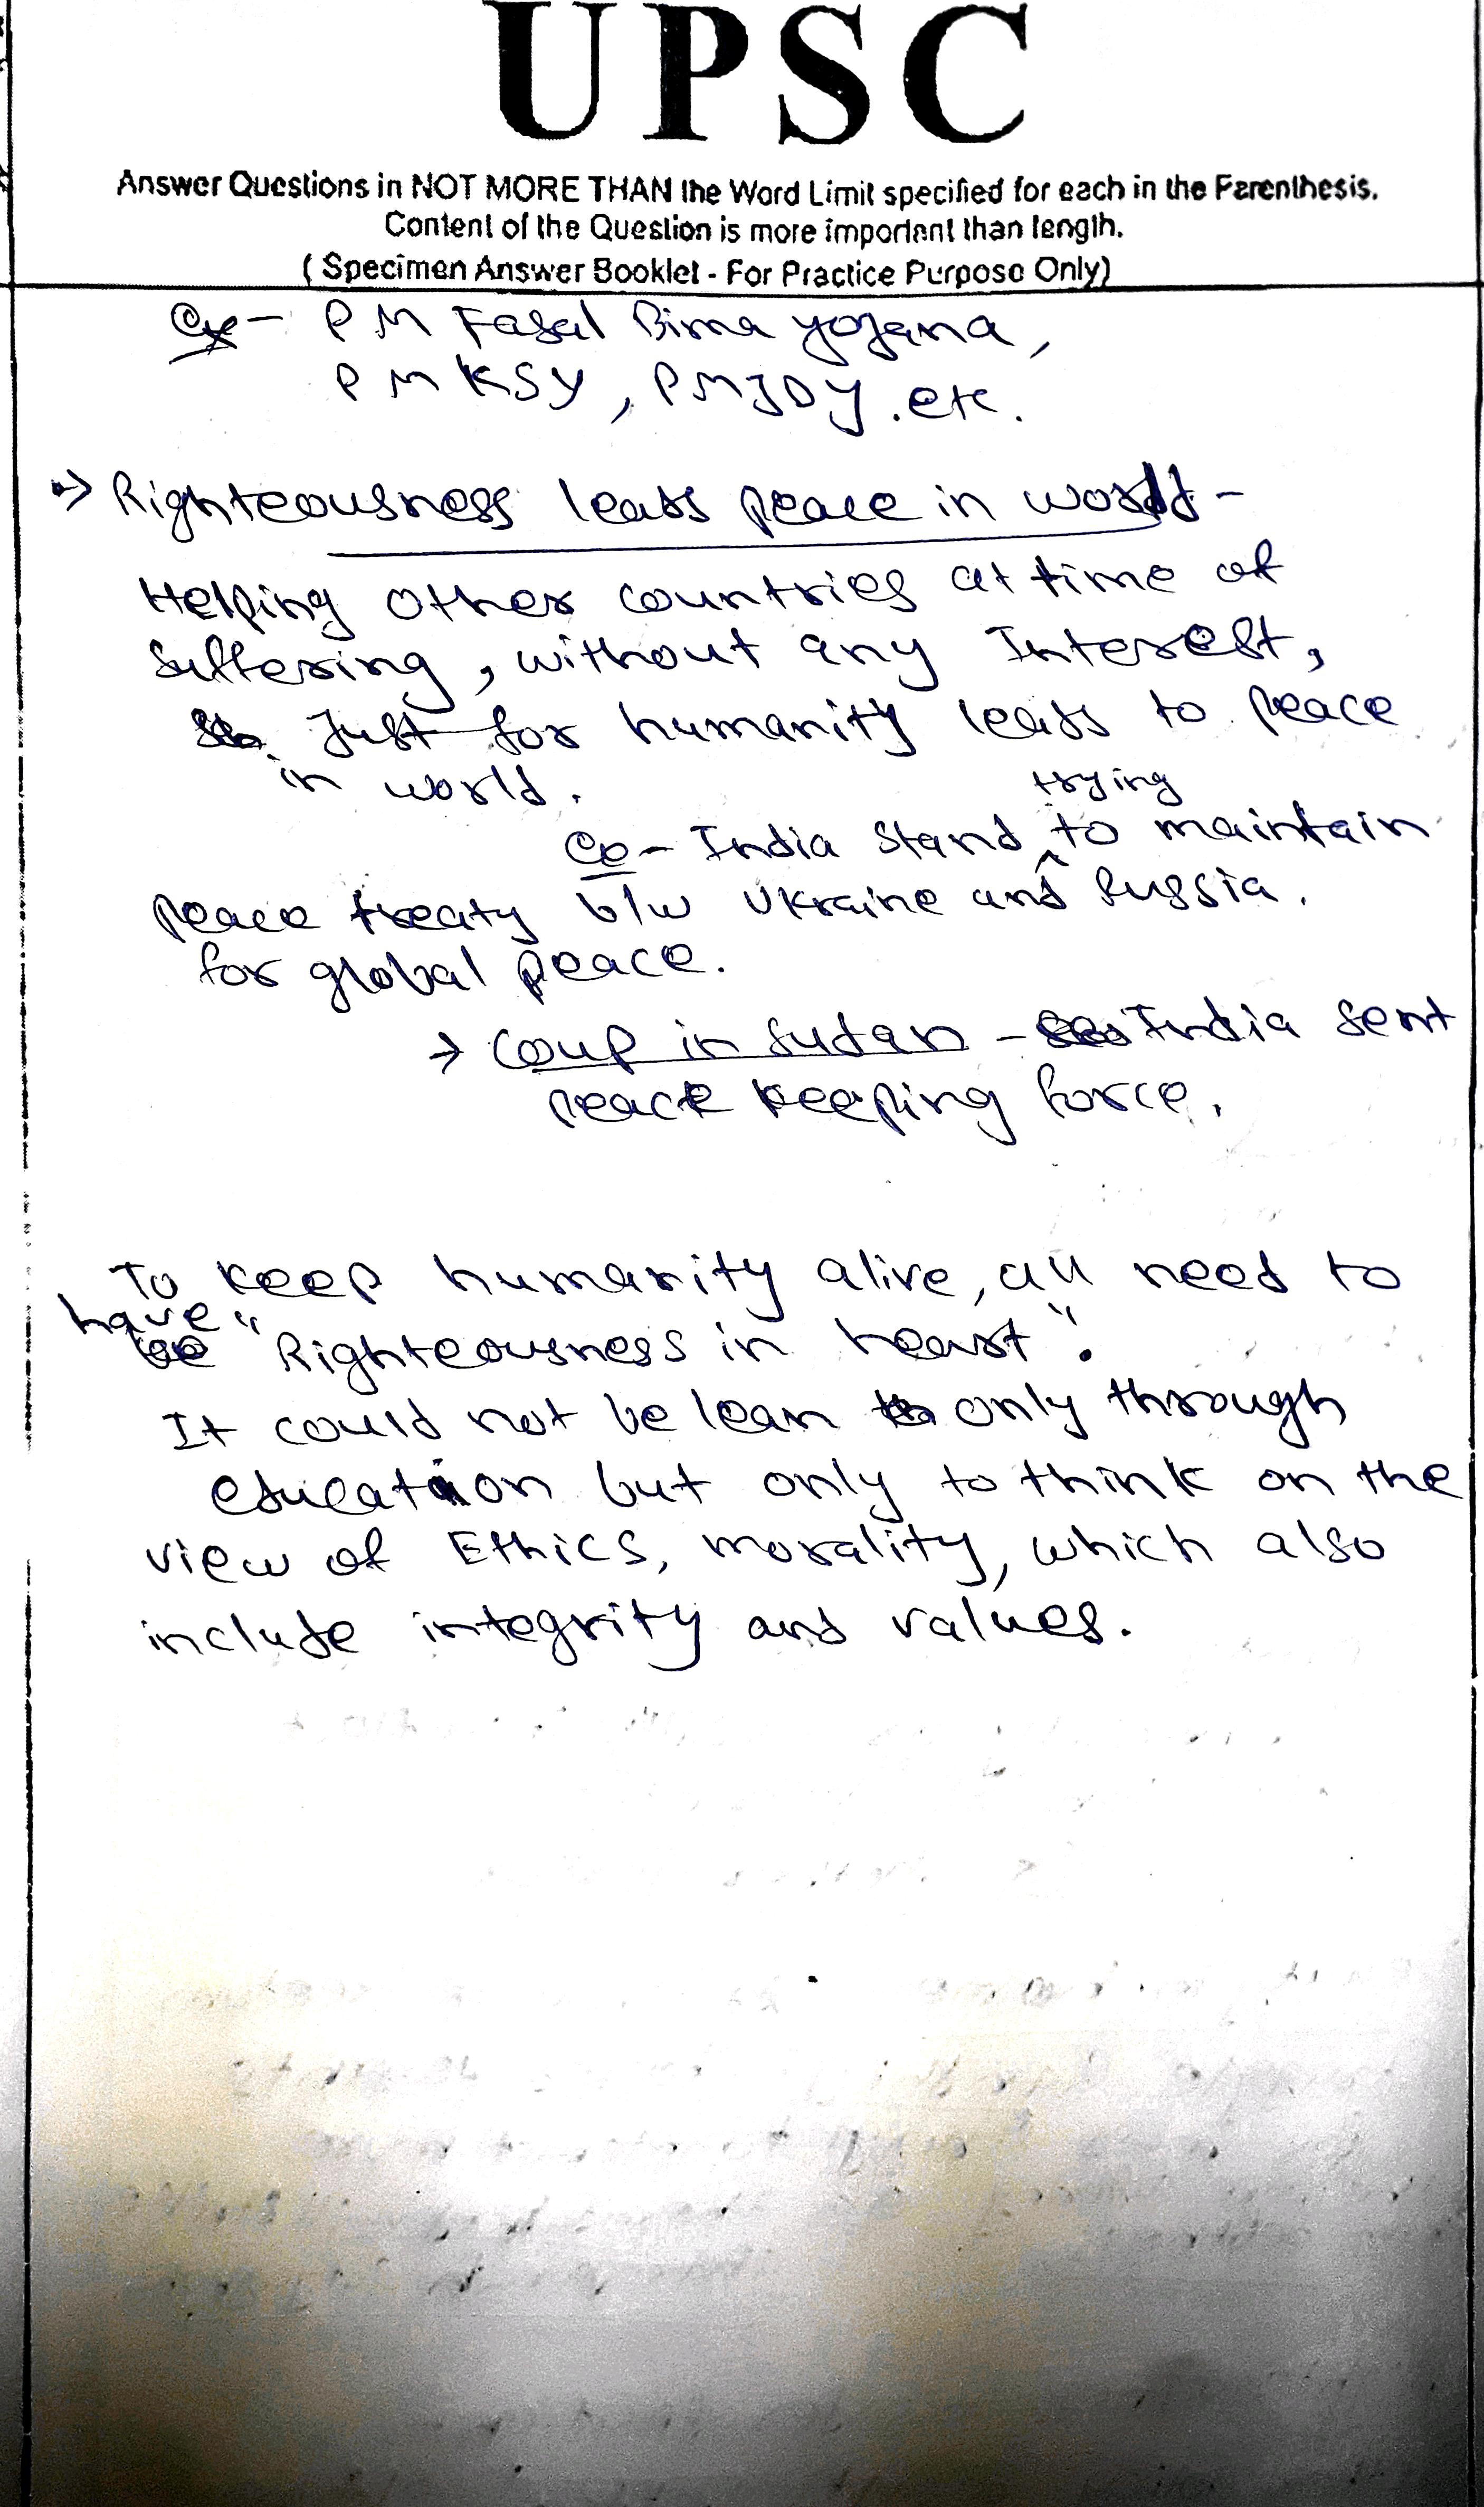 UPSC
Answer Questions in NOT MORE THAN the Word Limit specified for each in the Parenthesis.
Content of the Question is more important than length.
( Specimen Answer Booklet - For Practice Purpose Only)
Ex - PM Fasal Bima Yojana,
PMKSY, PMJDY. etc.
→ Righteousness leads peace in world -
Helping other countries at time of
suffering, without any Interest,
Just for humanity leads to peace
in world.
trying
Ex - India stand ^ to maintain
peace treaty b/w Ukraine and Russia.
for global peace.
→ Coup in Sudan - India sent
peace keeping force.
To keep humanity alive, all need to
have
"Righteousness in heart".
It could not be lean only through
education but only to think on the
view of Ethics, morality, which also
include integrity and values.